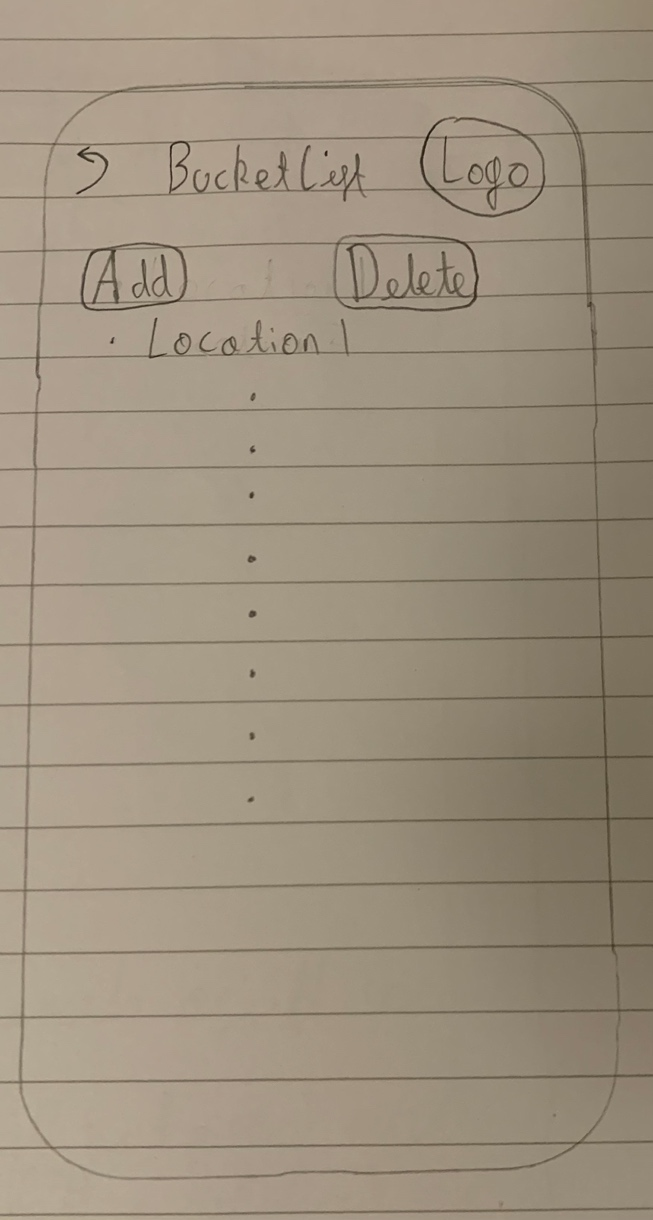 Bucketlist Logo
Add Delete
· Location 1